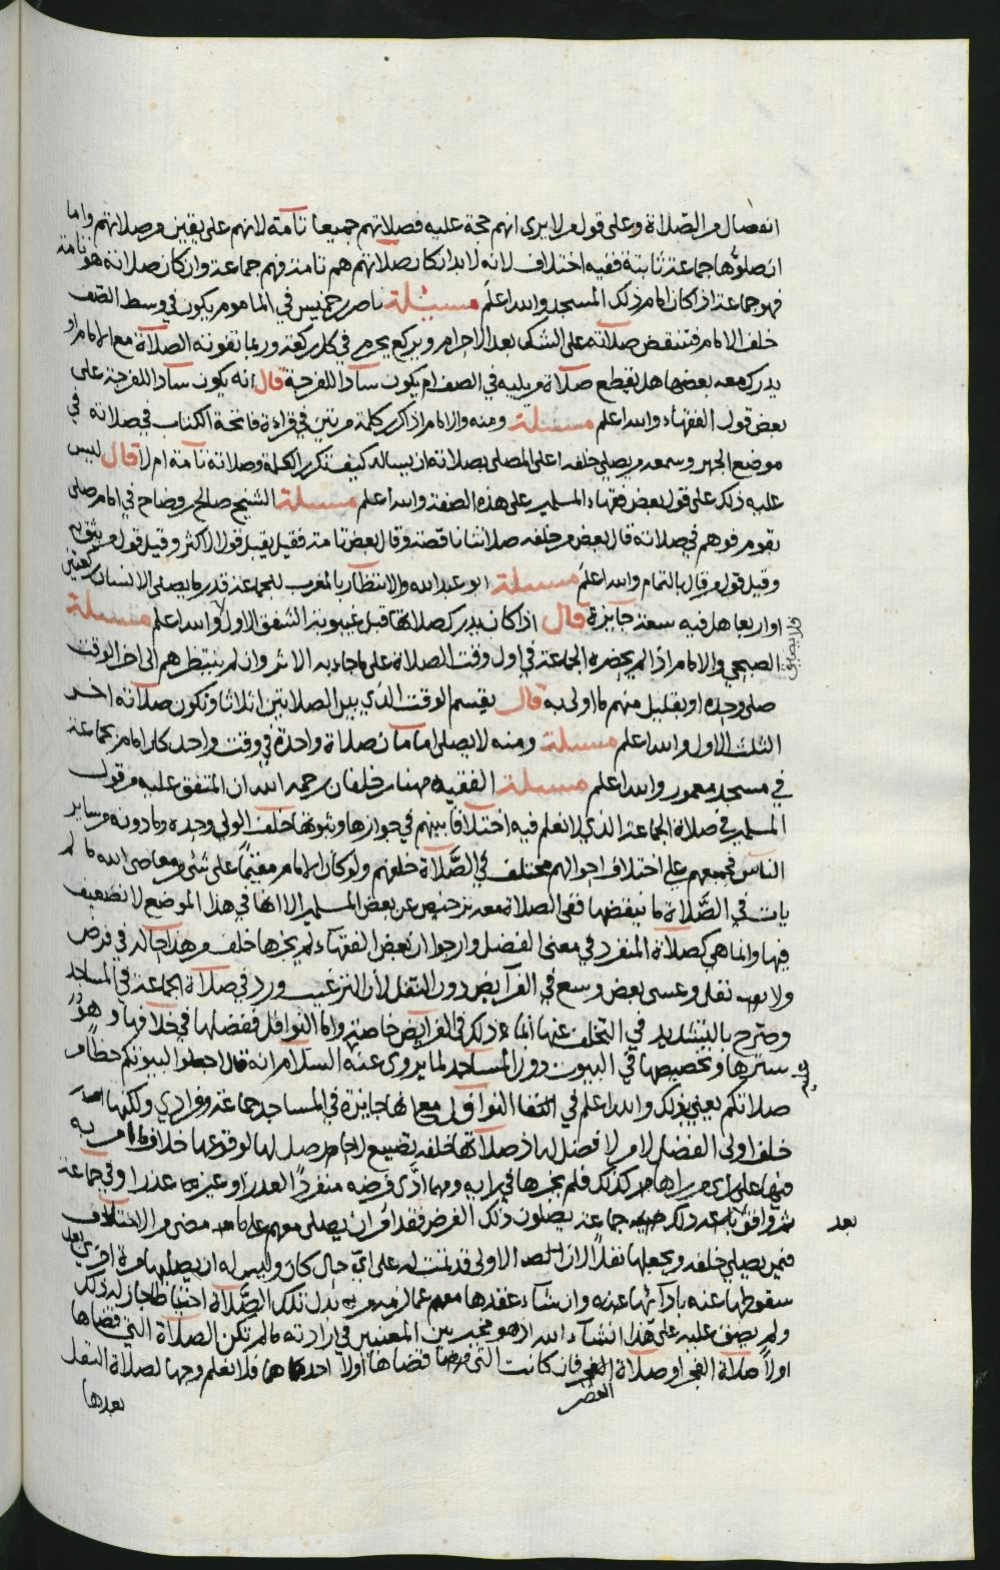 انفصال من الصلاة وعلى قول من لا يرى انهم حجة عليه فصلاتهم جميعا تامة لانهم على يقين من صلاتهم واما
ان صلوها جماعة ثانية ففيه اختلاف لانه لابد ان كان صلاتهم هم تامة فهم جماعة وان كان صلاته هو تامة
فهو جماعة اذا كان امام ذلك المسجد والله اعلم مسئلة ناصر بن خميس في الماموم يكون في وسط الصف
خلف الامام فتنتقض صلاته على الشك بعد الاحرام ويركع يحرم في كل ركعة وربما تفوته الصلاة مع الامام او
يدرك معه بعضها هل يقطع صلاة من يليه في الصف ام يكون سادا للفرجة قال انه يكون سادا للفرجة على
بعض قول الفقهاء والله اعلم مسئلة ومنه والامام اذا كرر كلمة مرتين في قراءة فاتحة الكتاب في صلاته في
موضع الجهر وسمعه من يصلي خلفه اعلى المصلي بصلاته ان يساله كيف تكرر الكلمة وصلاته تامة ام لا قال ليس
عليه ذلك على قول بعض فقهاء المسلمين على هذه الصفة والله اعلم مسئلة الشيخ صالح بن وضاح في امام صلى
بقوم فوهم في صلاته قال بعض من خلفه صلاتنا ناقصة وقال بعض تامة فقيل يقبل قول الاكثر وقيل قول من يثق به
وقيل قول من قال بالتمام والله اعلم مسئلة ابو عبدالله والانتظار بالمغرب للجماعة قدر ما يصلي الانسان ركعتين
او اربعا هل فيه سعة جايزة قال اذا كان يدرك صلاتها قبل غيبوبة الشفق الاول والله اعلم مسئلة
الصبحي والامام اذا لم يحضره الجماعة في اول وقت الصلاة على ما جاء به الاثر وان لم ينتظرهم الى اخر الوقت
صلى وحده او بقليل منهم ما اولى به قال يقسم الوقت الذي بين الصلاتين اثلاثا وتكون صلاته اخر
الثلث الاول والله اعلم مسئلة ومنه لا يصلي امامان صلاة واحدة في وقت واحد كل امام بجماعة
في مسجد معمور والله اعلم مسئلة الفقيه مهنا بن خلفان رحمه الله ان المتفق عليه من قول
المسلمين في صلاة الجماعة الذي لا نعلم فيه اختلافا بينهم في جوازها وثبوتها خلف الولي وحده وما دونه من ساير
الناس فجميعهم على اختلاف احوالهم مختلف في الصلاة خلفهم ولو كان الامام مقيما على شئ من معاصي الله ما لم
يات في الصلاة ما ينقضها ففي الصلاة معه ترخيص عن بعض المسلمين الا انها في هذا الموضع لا تضعيف
فيها وانما هي كصلاة المنفرد في معنى الفضل وارجوا ان بعض الفقهاء لم يجزها خلف من هذا حاله في فرض
ولا نفل وعسى بعض وسع في الفرائض دون النفل لان الترغيب ورد في صلاة الجماعة في المساجد
وصرح بالتشديد في التخلف عنها انما ذلك في الفرايض خاصة واما النوافل ففضلها في خلافها وهو
سترها وتخصيصها في البيوت دون المساجد لما يروى عنه السلام انه قال اجعلوا لبيوتكم حظا من
عليه
صلاتكم يعني بذلك والله اعلم في النوافل مع انها جايزة في المساجد جماعة وفرادى ولكنها
خلف اولي الفضل لا من لا فضل له اذ صلاتها خلفه تضييع لاجر من صلى لها لوقوعها خلاف ما امر به
فيها على راي من راها كذلك فلم يجزها في رايه ومهما ادى فرضه منفردا العذر او غير عذر او في جماعة
ثم وافق بعد ذلك جماعة يصلون ذلك الفرض فقد امر ان يصلي معهم على ما مضى من الاختلاف
بعد
فيمن يصلي خلفه ويجعلها نفلا لان الصلاة الاولى قد تمت له على اي حال كان وليس له ان يصليها مرة اخرى بعد
سقوطها عنه بادائها عنه وان شاء عقدها معهم عما لزمه من بدل تلك الصلاة احتياطا جاز له ذلك
ولم يضق عليه على هذا ان شاء الله اذ هو مخير بين المعنيين في ارادته ما لم تكن الصلاة التي قضاها
اولا صلاة الفجر او صلاة العصر فان كانت التي قضاها اولا احداهما فلا نعلم وجها لصلاة النفل
العصر
بعدها